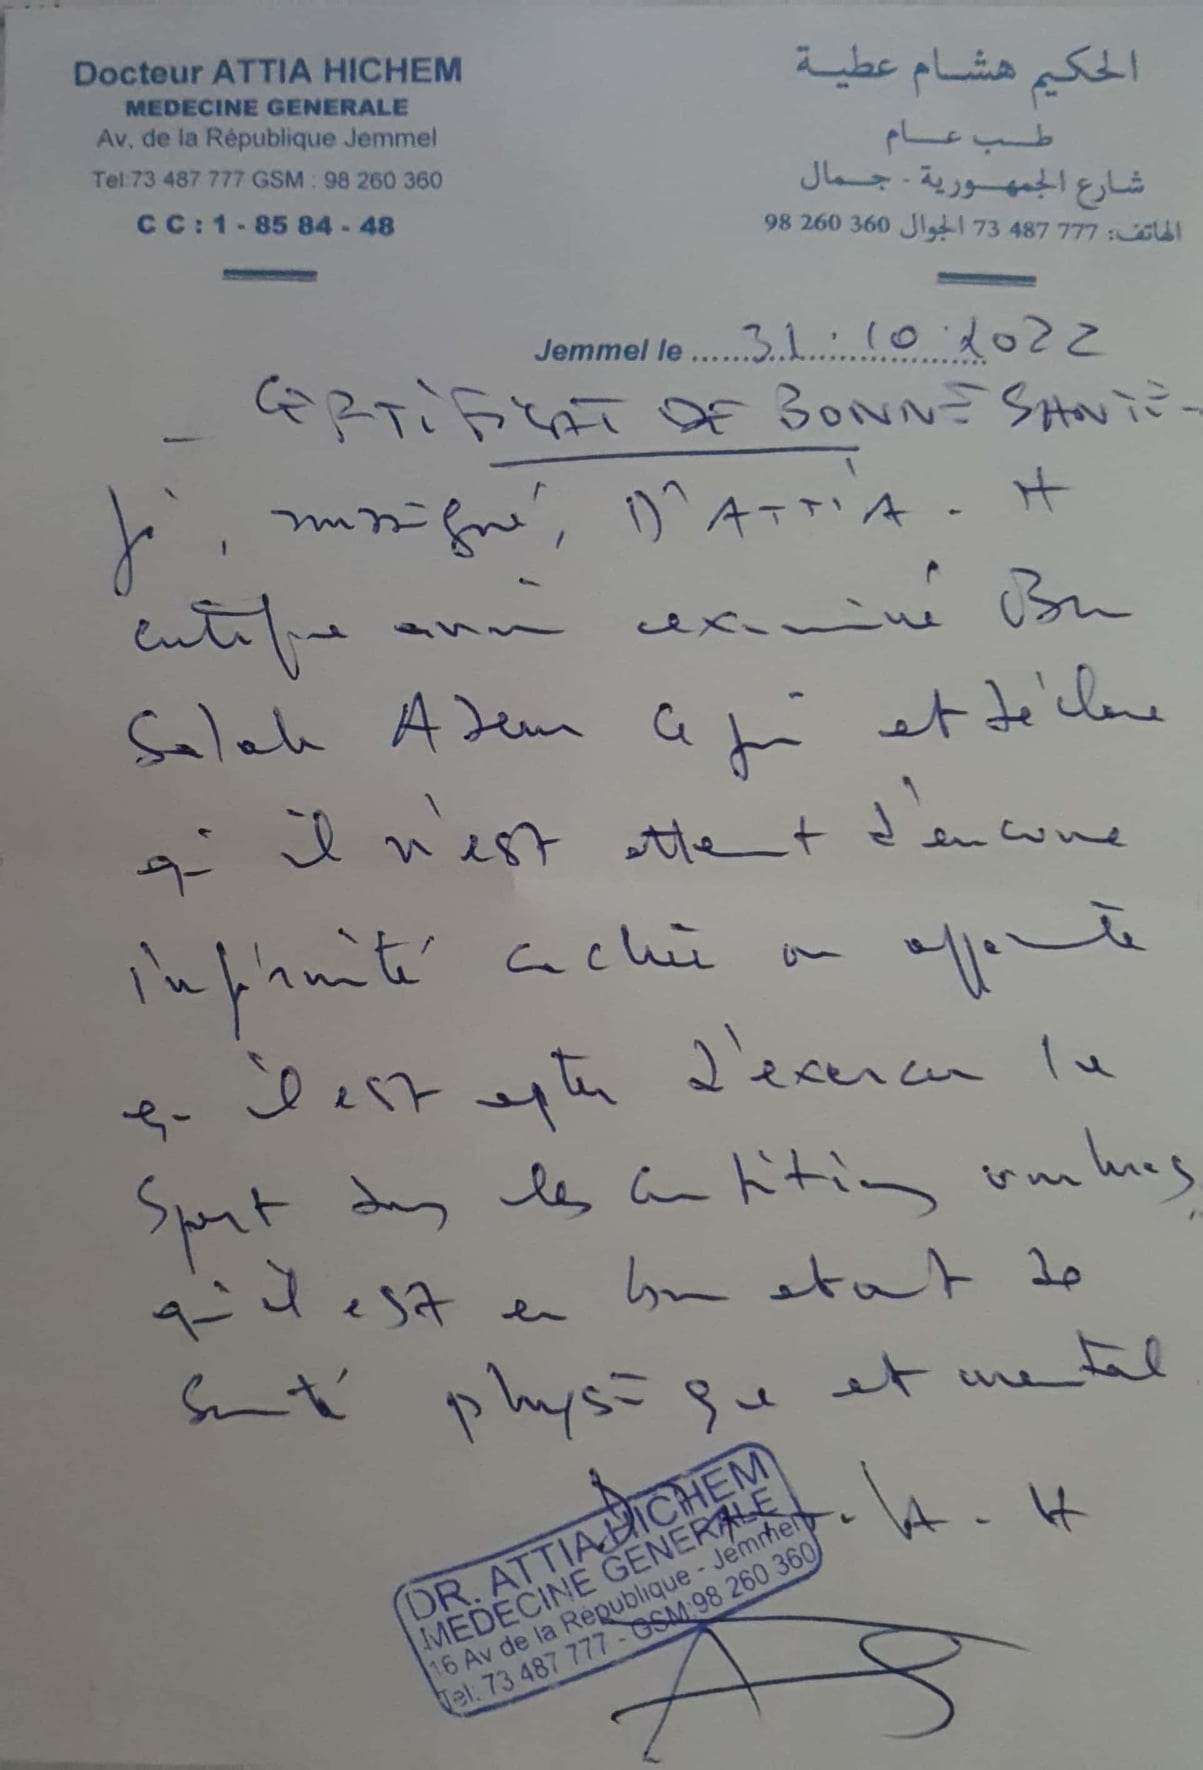 Docteur ATTIA HICHEM
MEDECINE GENERALE
Av. de la République Jemmel
Tel:73 487 777 GSM : 98 260 360
C C : 1 - 85 84 - 48
الحكيم هشام عطية
طب عام
شارع الجمهورية - جمال
الهاتف: 777 487 73 الجوال 360 260 98
Jemmel le ......31.10.2022
- CERTIFICAT DE BONNE SANTE -
Je, soussigné, Dr ATTIA . H
certifie avoir examiné Ben
Salah Adem ce jour et déclare
qu'il n'est atteint d'aucune
infirmité cachée ou apparente
qu'il est apte d'exercer le
Sport dans les conditions
qu'il est en bon etat de
santé physique et mental
Dr . A . H
DR. ATTIA HICHEM
MEDECINE GENERALE
16 Av de la République - Jemmel
Tel: 73 487 777 - GSM:98 260 360